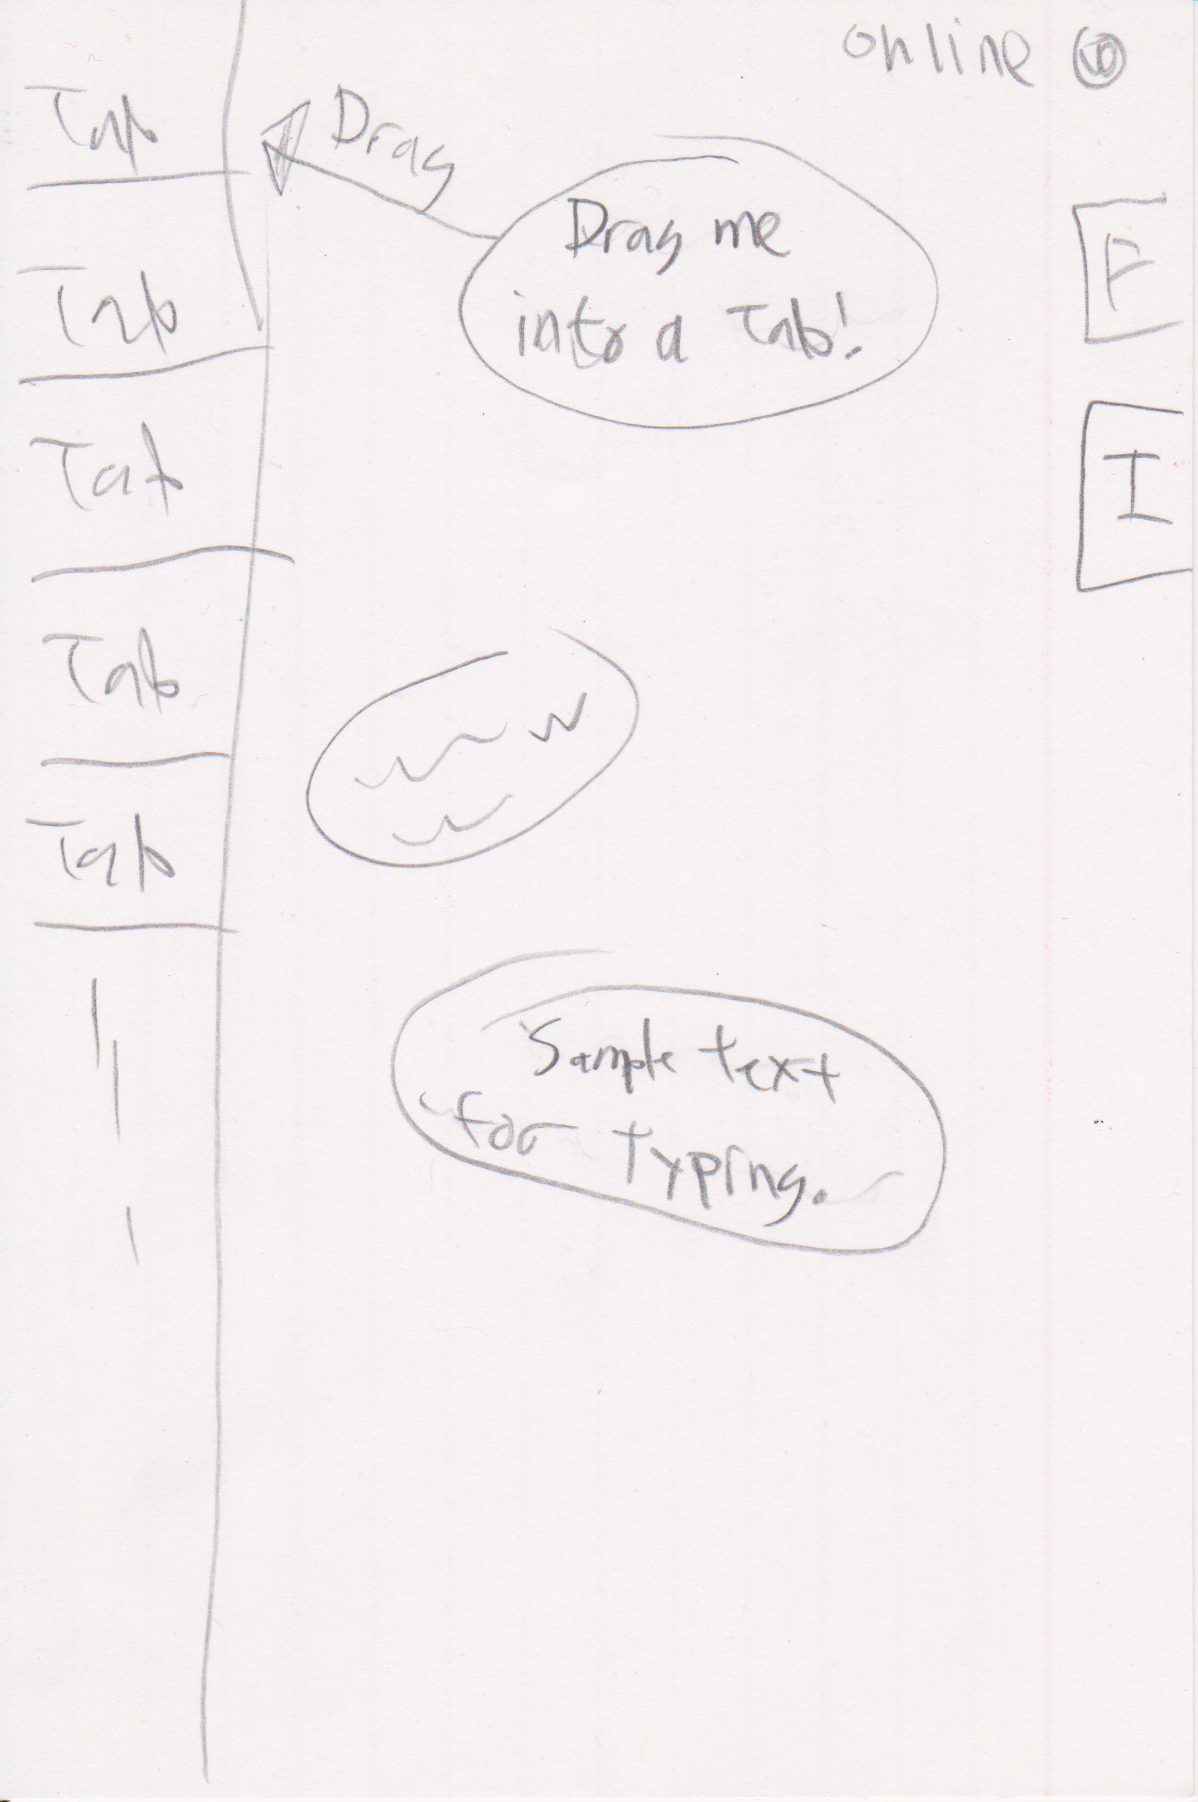 online
Tab
Drag
Drag me
into a Tab!
F
Tab
Tab
I
Tab
Tab
Sample text
for typing.